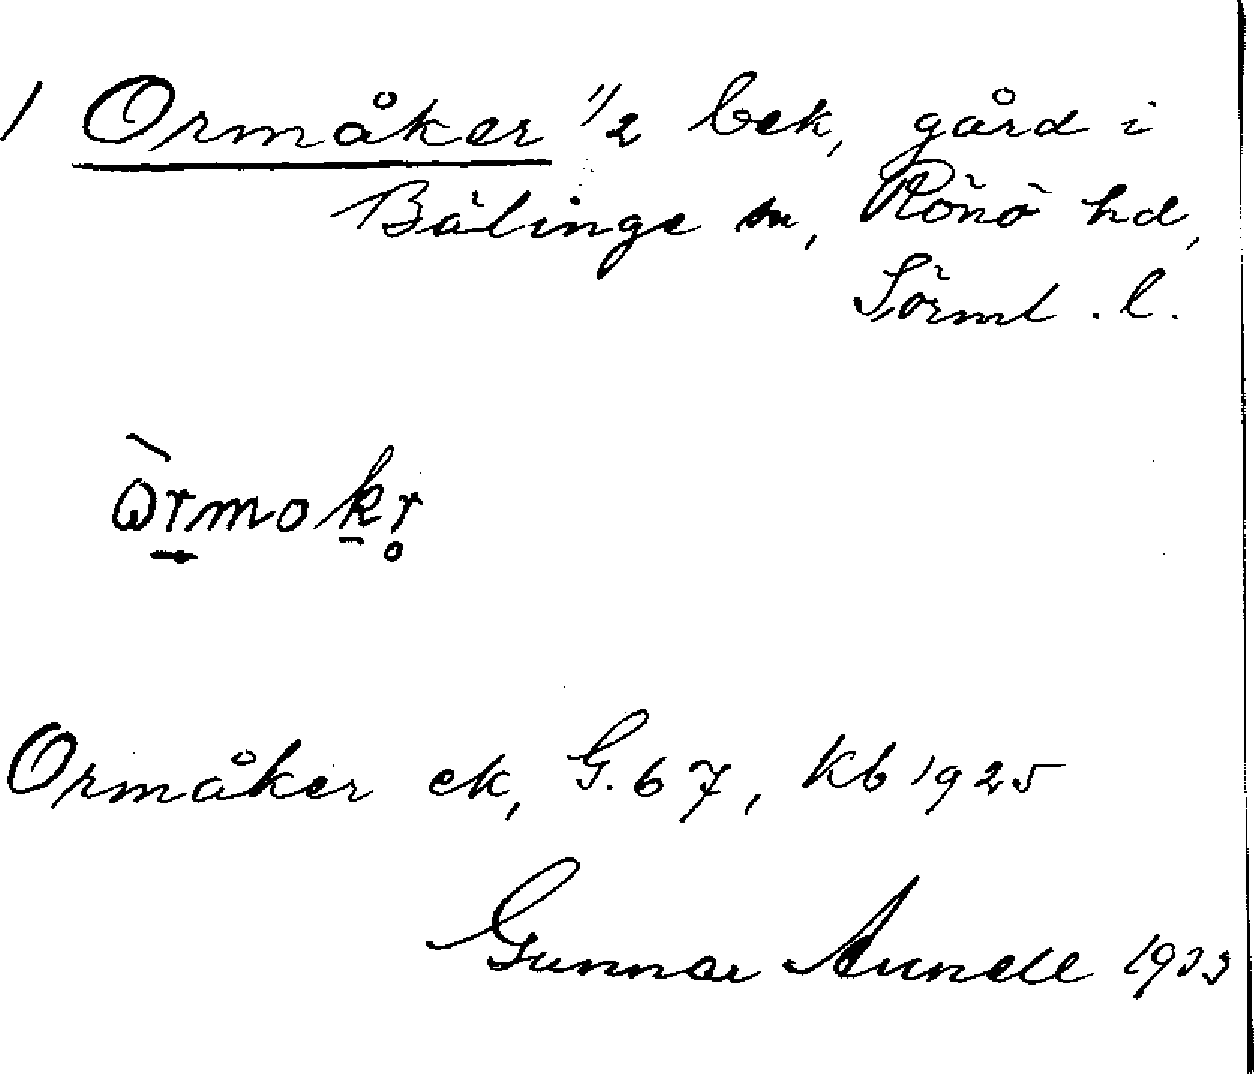 1 Ormåker 1/2 bek, gård i
Bälinge sn, Rönö hd,
Sörml. l.
ɷ̀rmokr̥
Ormåker ek, G. 67, Kb 1925
Gunnar 1933